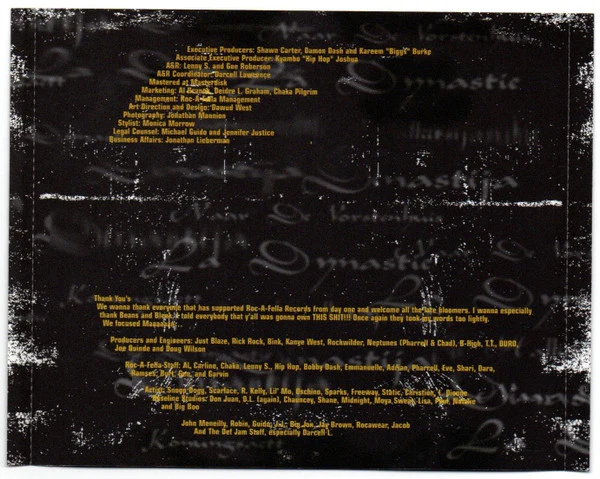 Executive Producers: Shawn Carter, Damon Dash and Kareem "Biggs" Burke
Associate Executive Producer: Kyambo "Hip Hop" Joshua
A&R: Lenny S. and Gee Roberson
A&R Coordinator: Darcell Lawrence
Mastered at Masterdisk
Marketing: Al Branch, Deidre L. Graham, Chaka Pilgrim
Management: Roc-A-Fella Management
Art Direction and Design: Dawud West
Photography: Jonathan Mannion
Stylist: Monica Morrow
Legal Counsel: Michael Guido and Jennifer Justice
Business Affairs: Jonathan Lieberman
Dynastie
Dynastija
Naar De Vorstenhuis
La Dynastie
Thank You's
We wanna thank everyone that has supported Roc-A-Fella Records from day one and welcome all the late bloomers. I wanna especially
thank Beans and Bleek, I told everybody that y'all was gonna own THIS SHIT!!! Once again they took my words too lightly.
We focused
Producers and Engineers: Just Blaze, Rick Rock, Bink, Kanye West, Rockwilder, Neptunes (Pharrell & Chad), B-High, T.T., DURO,
Joe Quinde and Doug Wilson
Roc-A-Fella-Staff: Al, Carline, Chaka, Lenny S., Hip Hop, Bobby Dash, Emmanuelle, Adrian, Pharrell, Eve, Shari, Dara,
Ramses, Burt, Gee, and Garvin
Artist: Snoop Dogg, Scarface, R. Kelly, Lil' Mo, Oschino, Sparks, Freeway, Static, Christion,
Baseline Studios: Don Juan, D.L. (again), Chauncey, Shane, Midnight, Moya Sweat, Lisa, Paul, Natalie
and Big Boo
John Meneilly, Robin, Guido, Big Jon, Jay Brown, Rocawear, Jacob
And The Def Jam Staff, especially Darcell L.